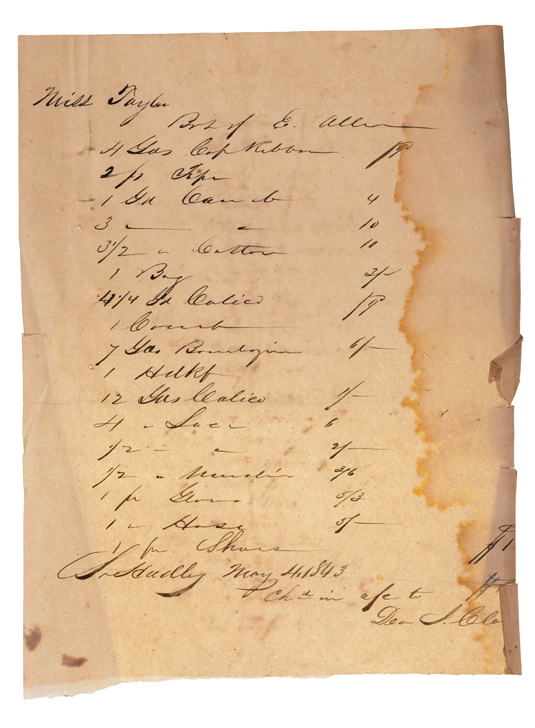 Miss Taylor
Bot of E. Allen
4 Yds Cap Ribbon
2 ps Tape
1 Yd Camb 4
3 " " 10
3 1/2 " Cotton 10
1 Bag 2/
4 1/4 Yd Calico
1 Comb
7 Yds 6/
1 Hdkf
12 Yds Calico 1/
4 " Lace 6
1/2 " " 2/
1/2 " Muslin 3/6
1 pr Gloves 3/3
1 " Hose 3/
1 pr Shoes $1
So Hadley May 4, 1843
Chd in a/c to
Dea J. Cla